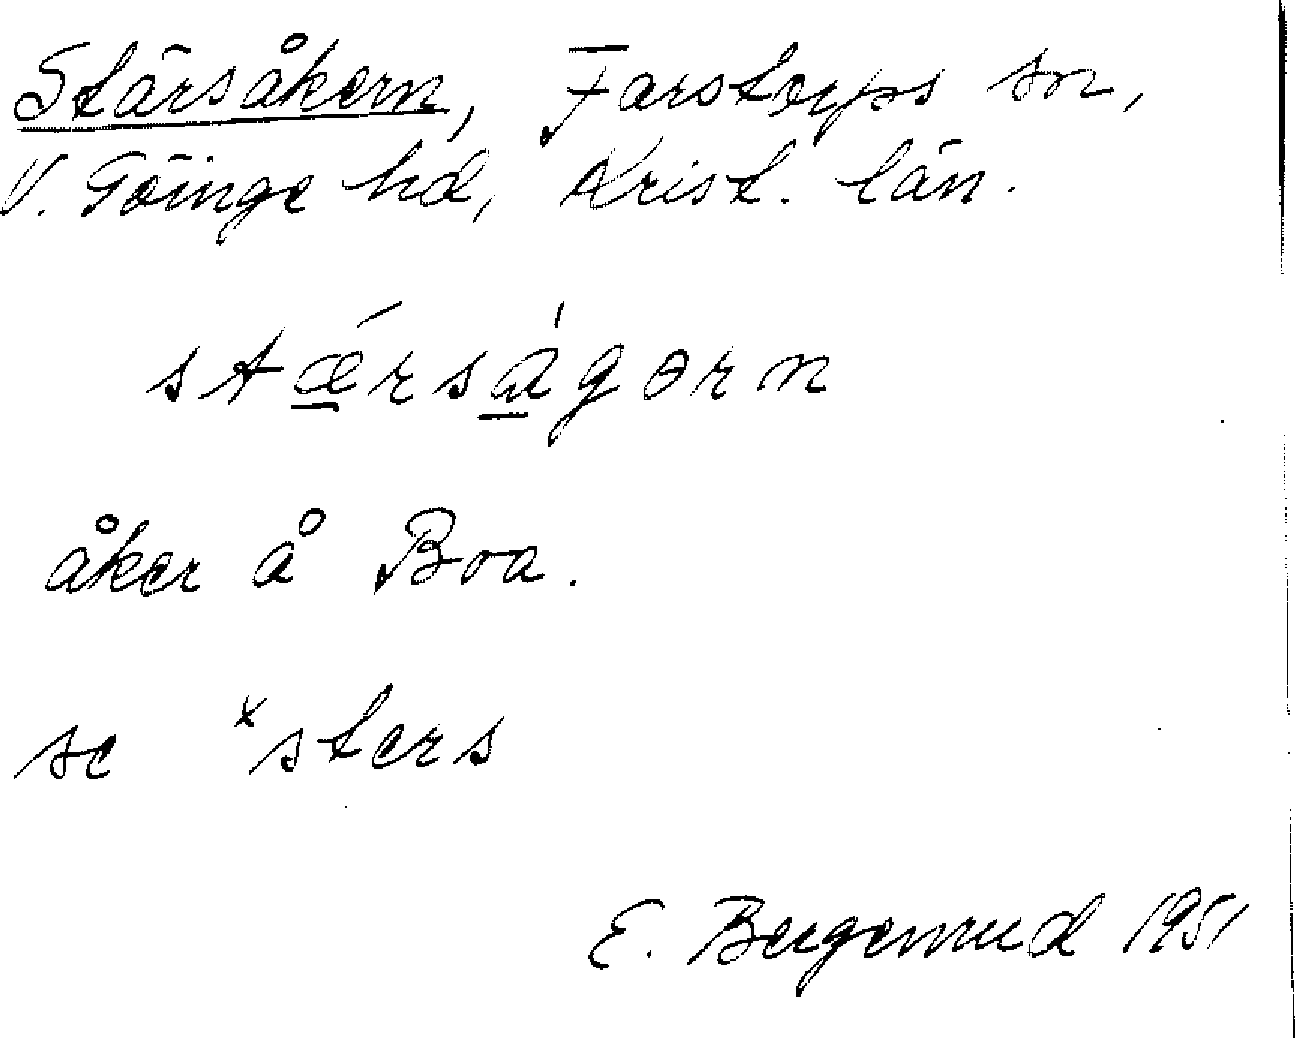 Stärsåkern, Farstorps sn,
V. Göinge hd, Krist. län.
stǽrságərn
åker å Boa.
se ˣsters
E. Bergemrud 1951